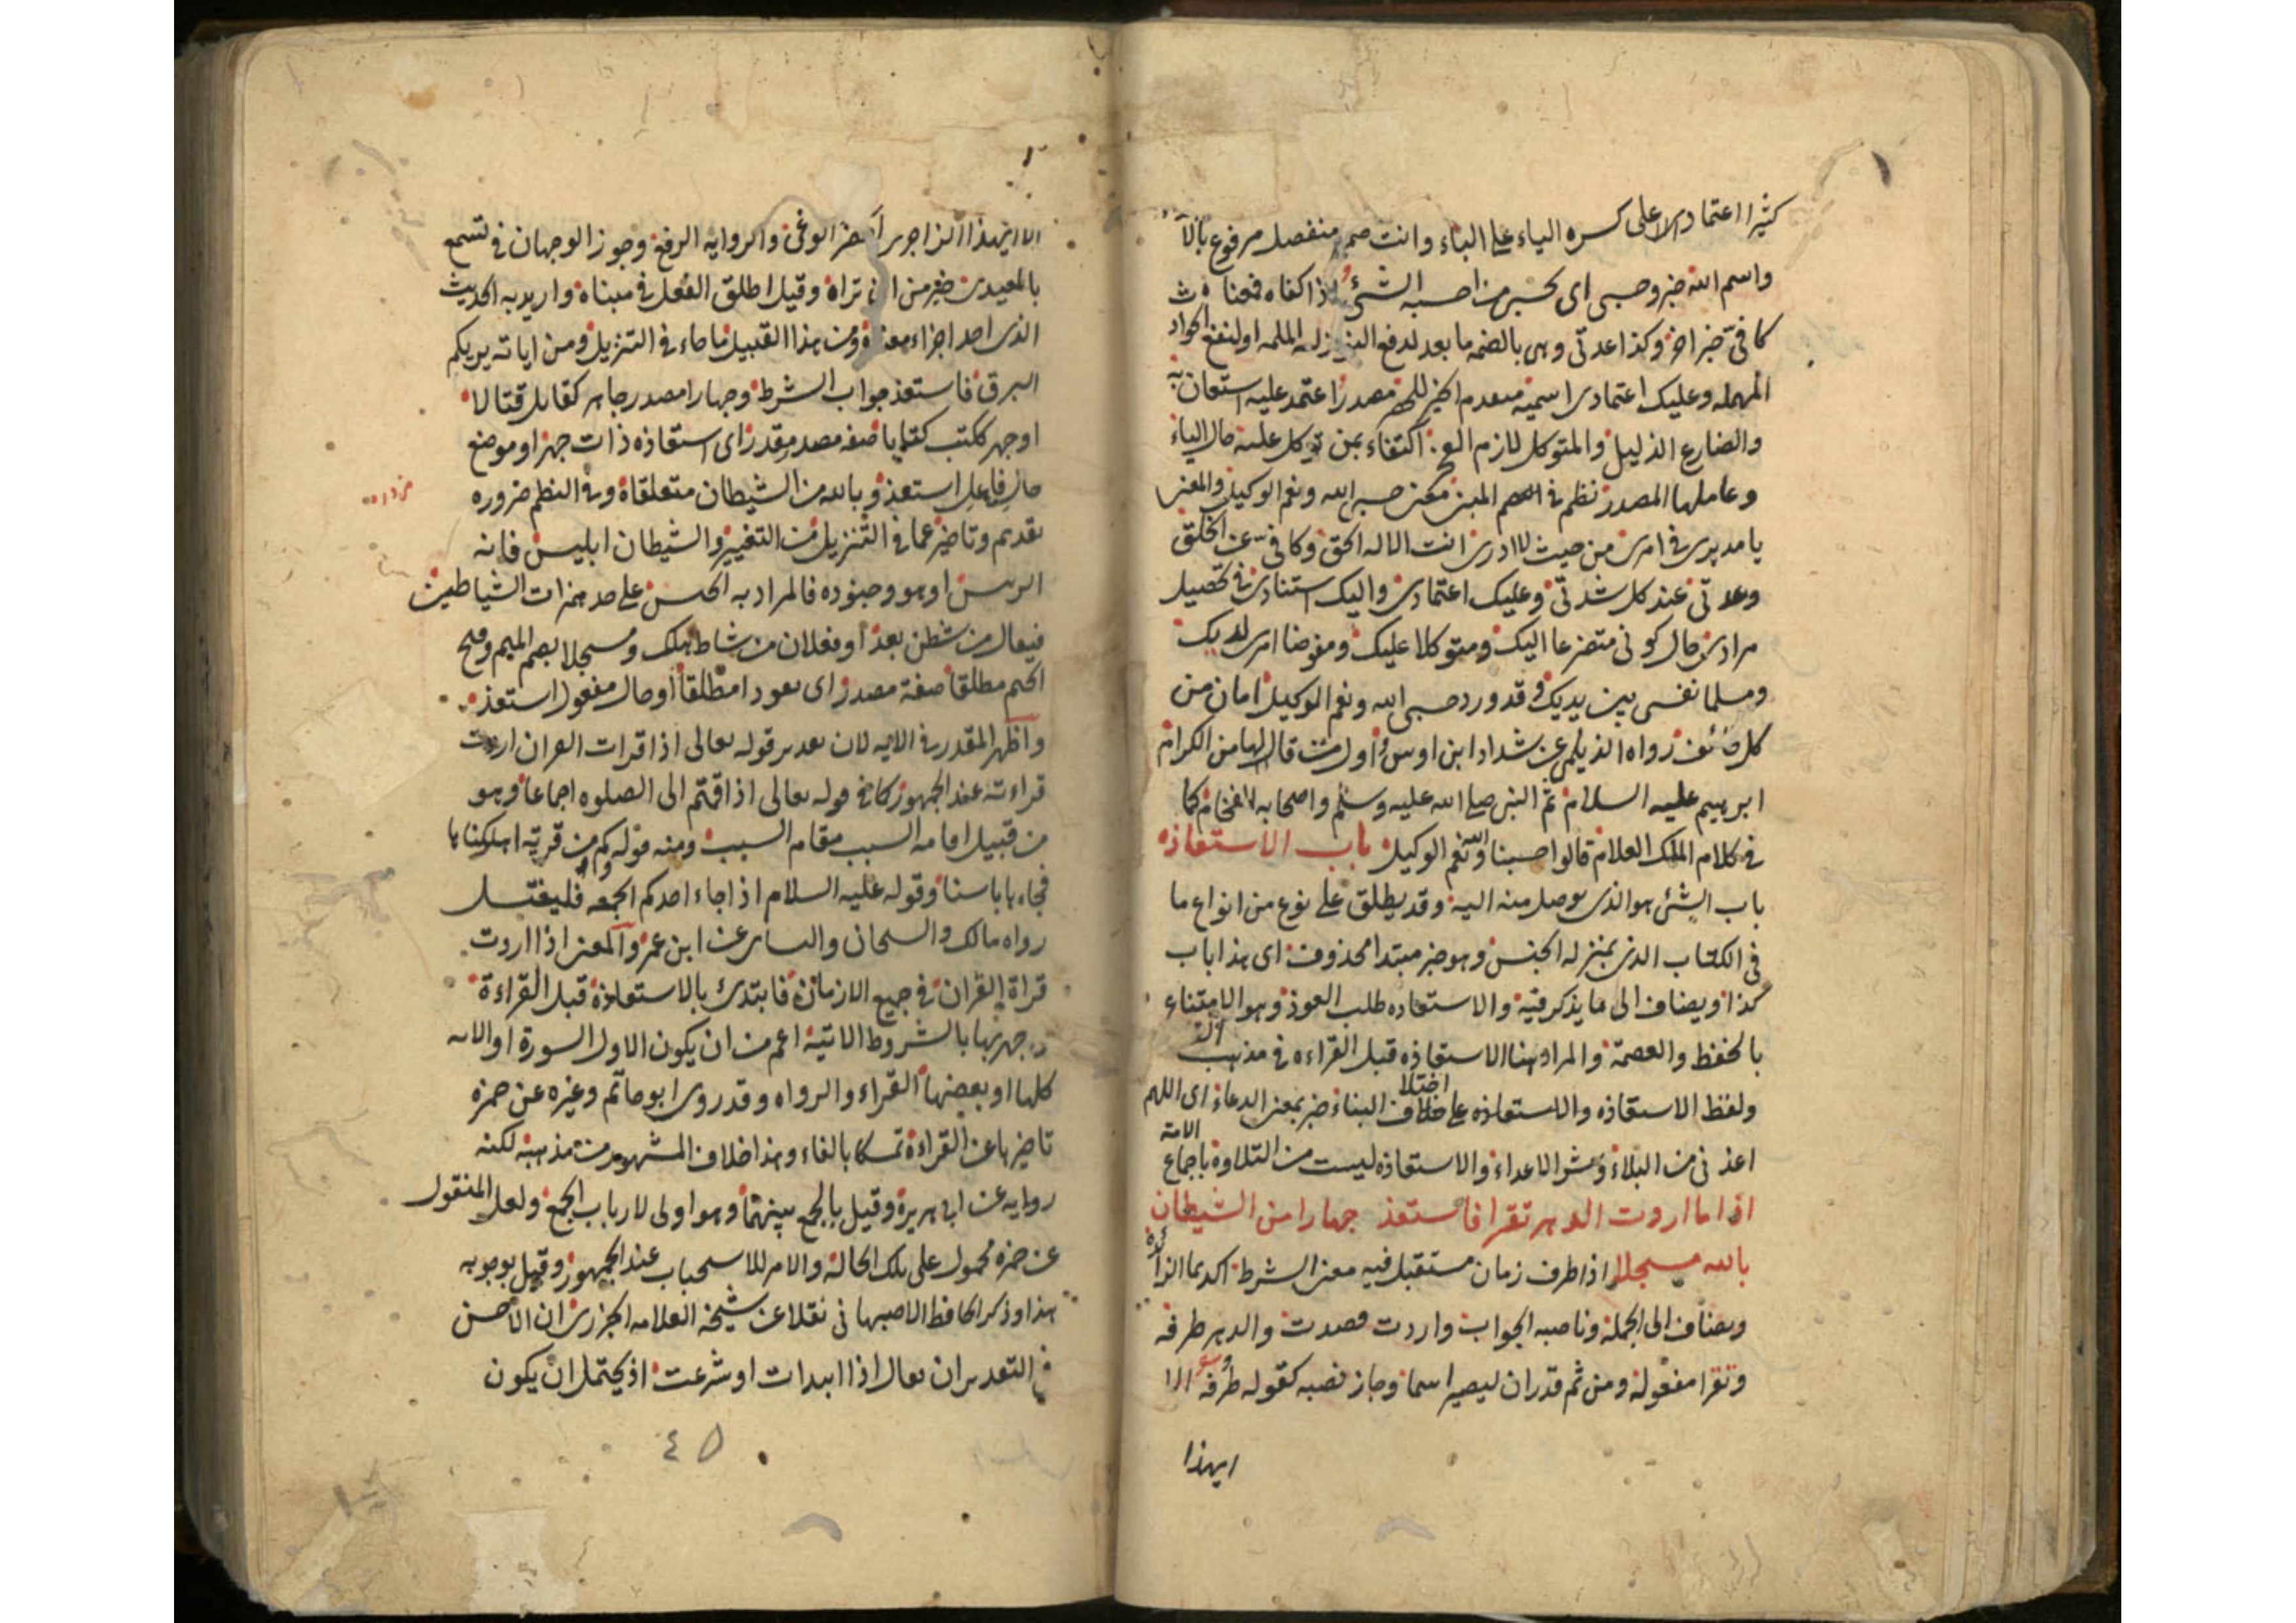 كثيرا اعتمادى الا على كسره الياء على البناء وانت ضمير منفصل مرفوع
واسم الله خبر وحسبى اى محسبى من احسبه الشئ اذا كفاه فمعناه
كافىّ خبر اخر وكذا عدتى وهى بالضم ما يعد لدفع
المهمله وعليك اعتمادى اسميه مقدم الخبر مصدر اعتمد عليه استعان به
والضارع الذليل والمتوكل لازم اكتفاء بمن توكل عليه حال الياء
وعاملها المصدر نظم فى معنى حسبى الله ونعم الوكيل والمعنى
يا مدبرى فى امرى من حيث لا ادرى انت الاله الحق وكافى عن الخلق
وعدتى عند كل شدتى وعليك اعتمادى واليك استنادى فى تحصيل
مرادى حال كونى متضرعا اليك ومتوكلا عليك ومفوضا امرى لديك
ومسلما نفسى بين يديك وقد ورد حسبى الله ونعم الوكيل امان من
كل خائف رواه الديلمى عن شداد ابن اوس واول من قالها من الكرام
ابرهيم عليه السلام ثم النبى صلى الله عليه وسلم واصحابه الفخام كما
فى كلام الملك العلام قالوا حسبنا الله ونعم الوكيل باب الاستعاذه
باب الشئ هو الذى يوصل منه اليه وقد يطلق على نوع من انواع ما
فى الكتاب الذى بمنزله الجنس وهو خبر مبتدا محذوف اى هذا باب
كذا ويضاف الى ما يذكر فيه والاستعاذه طلب العوذ وهو الامتناع
بالحفظ والعصمة والمراد هنا الاستعاذه قبل القراءه فى مذهب
ولفظ الاستعاذه والاستعاذه على اختلاف البناء خبر بمعنى الدعاء اى اللهم
اعذنى من البلاء وشر الاعداء والاستعاذه ليست من التلاوة باجماع الامة
اذا ما اردت الدهر تقرا فاستعذ جهارا من الشيطان
بالله مسجلا اذا ظرف زمان مستقبل فيه معنى الشرط اكد بما الزائدة
ويضاف الى الجملة وناصبه الجواب واردت قصدت والدهر ظرفه
وتقرا مفعوله ومن ثم قدر ان ليصير اسما وجاز نصبه كقوله طرفه الا
ايهذا
الا ايهذا الزاجرى احضر الوغى والروايه الرفع وجوز الوجهان فى تسمع
بالمعيدى خير من ان تراه وقيل اطلق الفعل فى مبناه واريد به الحديث
الذى احد اجزاء معناه ومن هذا القبيل ما جاء فى التنزيل ومن اياته يريكم
البرق فاستعذ جواب الشرط وجهارا مصدر جاهر كقاتل قتالا
او جهر ككتب كتابا صفه مصدر مقدر اى استعاذه ذات جهر او موضع
حال فاعل استعذ وبالله من الشيطان متعلقاه وفى النظم ضروره
تقديم وتاخير عما فى التنزيل من التغيير والشيطان ابليس فانه
الرئيس او هو وجنوده فالمراد به الجنس على حد همزات الشياطين
فيعال من شطن بعد او فعلان من شاط هلك ومسجلا بضم الميم وفتح
الجيم مطلقا صفة مصدر اى تعوذا مطلقا او حال مفعول استعذ
واظهر المقدر فى الايه لان تقدير قوله تعالى اذا قرات القران اردت
قراءته عند الجمهور كما فى قوله تعالى اذا قمتم الى الصلوه اجماعا وهو
من قبيل اقامه السبب مقام المسبب ومنه قوله وكم من قرية اهلكناها
فجاءها باسنا وقوله عليه السلام اذا جاء احدكم الجمعه فليغتسل
رواه مالك والشيخان والنسائى عن ابن عمر والمعنى اذا اردت
قراة القران فى جميع الازمان فابتدئ بالاستعاذه قبل القراءة
وجهر بها بالشروط الاتيه اعم من ان يكون الاول السورة او الايه
كلها او بعضها القراء والرواه وقد روى ابو حاتم وغيره عن حمزه
تاخيرها عن القراءة تمسكا بالفاء وهذا خلاف المشهور من مذهبه لكنه
روايه عن ابى هريرة وقيل بالجمع بينهما وهو اولى لارباب الجمع ولعل المنقول
عن حمزه محمول على تلك الحاله والامر للاستحباب عند الجمهور وقيل بوجوبه
هذا وذكر الحافظ الاصبهانى نقلا عن شيخه العلامه الجزرى ان الاحسن
فى التقدير ان يقال اذا ابتدات او شرعت اذ يحتمل ان يكون
٤٥